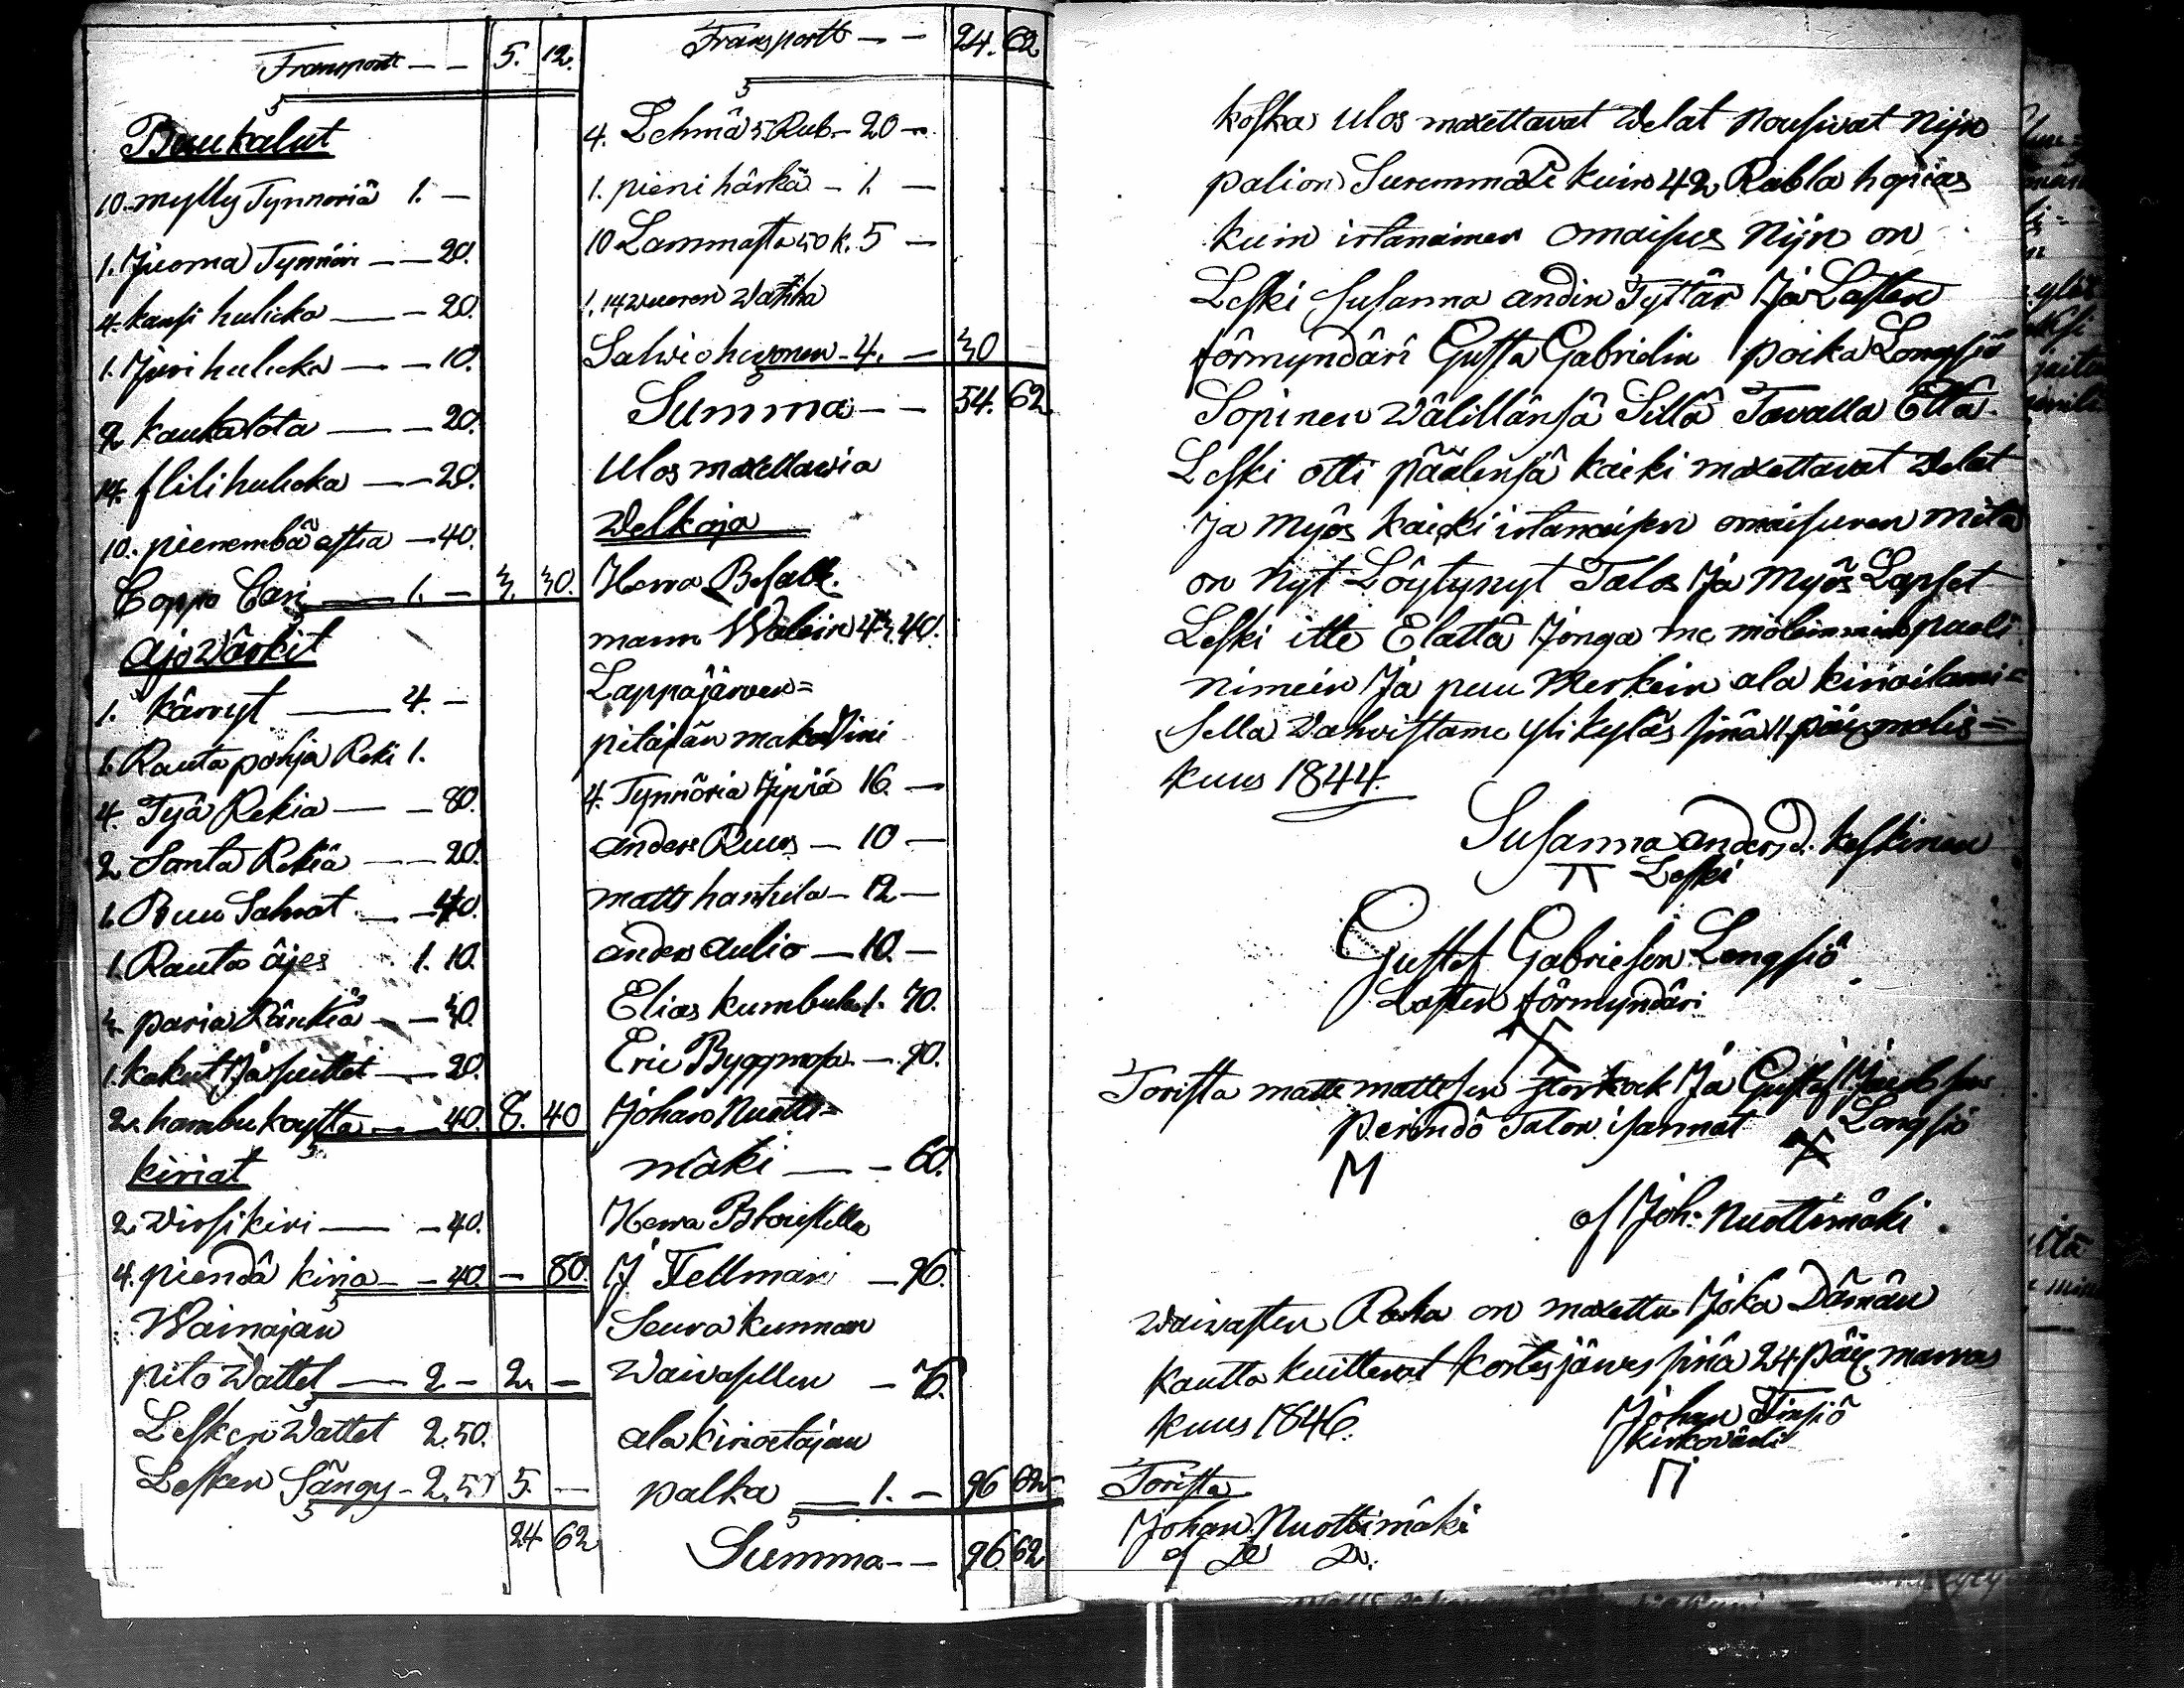 Transportt — — 5. 12.
Puukalut
10. mylly Tynnöriä 1. —
1. Juoma Tynnöri — — 20.
4. kansi hulicka — — 20.
1. Jyvi hulicka — — 10.
2 kaukalota — — 20.
14. flili hulicka — — 20.
10. pienembä astia — 40.
Coppa Cari — 1. — 3. 30.
Ajo Wärkit
1. kärryt — 4. —
1. Rauta pohja Reki 1.
4. Työ Rekiä — — 80.
2 Sonta Rekiä — — 20.
1. Puu Sahrat — — 40.
1. Rauta äjes 1. 10.
3. paria Länkiä — — 30.
1. kakut Ja suittet — 20.
2. hambu kaytta — 40. 8. 40
kiriat
2. Virsikiri — — 40.
4. piendä kiria — — 40. — 80.
Wainajan
pito Wattet — 2 — 2. —
Lesken Wattet 2.50.
Lesken Sängy — 2.50 5. —
24 62
Transportt — — 24. 62
4. Lehmä 5 Rub — 20 —
1. pieni härkä — 1. —
10 Lammasta 50 k. 5 —
1. 14 wuoren Watha
Salwio huonen — 4. — 30
Summa — — 54. 62
Ulos maxettawia
Welkoja
Herra Befall-
mann Walein 43. 40.
Lappajärven=
pitäjän makasini
4. Tynnöria Jyviä 16. —
anders Ruus — 10 —
matts hanhila — 12 —
anders aulio — 10. —
Elias kumbula 1. 70.
Eric Byggmäs. — 90.
Johan Nuotti=
mäki — — 60.
Herra
J Tellman — 96.
Seurakunnan
Waivasillen — 76.
ala kirioitajan
palka — 1. — 96 62
Summa — — 96 62
koska ulos maxettavat Velat Nousivat Nijn
palion Suremmaxi kuin 42 Rubla hopias
kuin irtanainen omaisus Nijn on
Leski Susanna andin Tyttär Ja Lasten
förmyndäri Gusta Gabrielin poika Longsiö
Sopinen Välillänsä Sillä Tavalla Että
Leski otti päälensä kaicki maxettavat Velat
Ja Myös kaicki irtanaisen omaisuren mitä
on Nyt Löytynyt Talos Ja Myös Lapset
Leski itte Elättä Jonga me molemmin puoli
Nimein Ja puu Merkein ala kirioitami=
sella Vahvistame ylikyläs sinä 11. päiv. malis=
kuus 1844.
Susanna anders d. keskinen
Leski
Gustaf Gabrielson Longsiö
Lasten förmyndäri
Torista matts mattsson storkock Ja Gustaf Jacobsson
perindö Talon isännät Longsiö
af Joh: Nuottimäki
Waivasten Raha on maxettu Joka Dämän
kautta kuittevat kortesjärves sinä 24 päiv. marras
kuus 1846. Johan Finsiö
kirkovärdi
Torista
Johan Nuottimäki